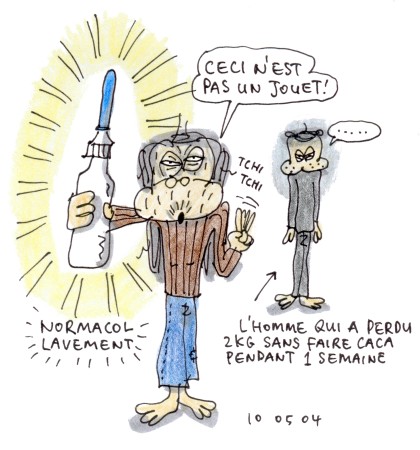 CECI N'EST
PAS UN JOUET!
TCHI
TCHI
.....
NORMACOL
LAVEMENT
L'HOMME QUI A PERDU
2KG SANS FAIRE CACA
PENDANT 1 SEMAINE
10 05 04